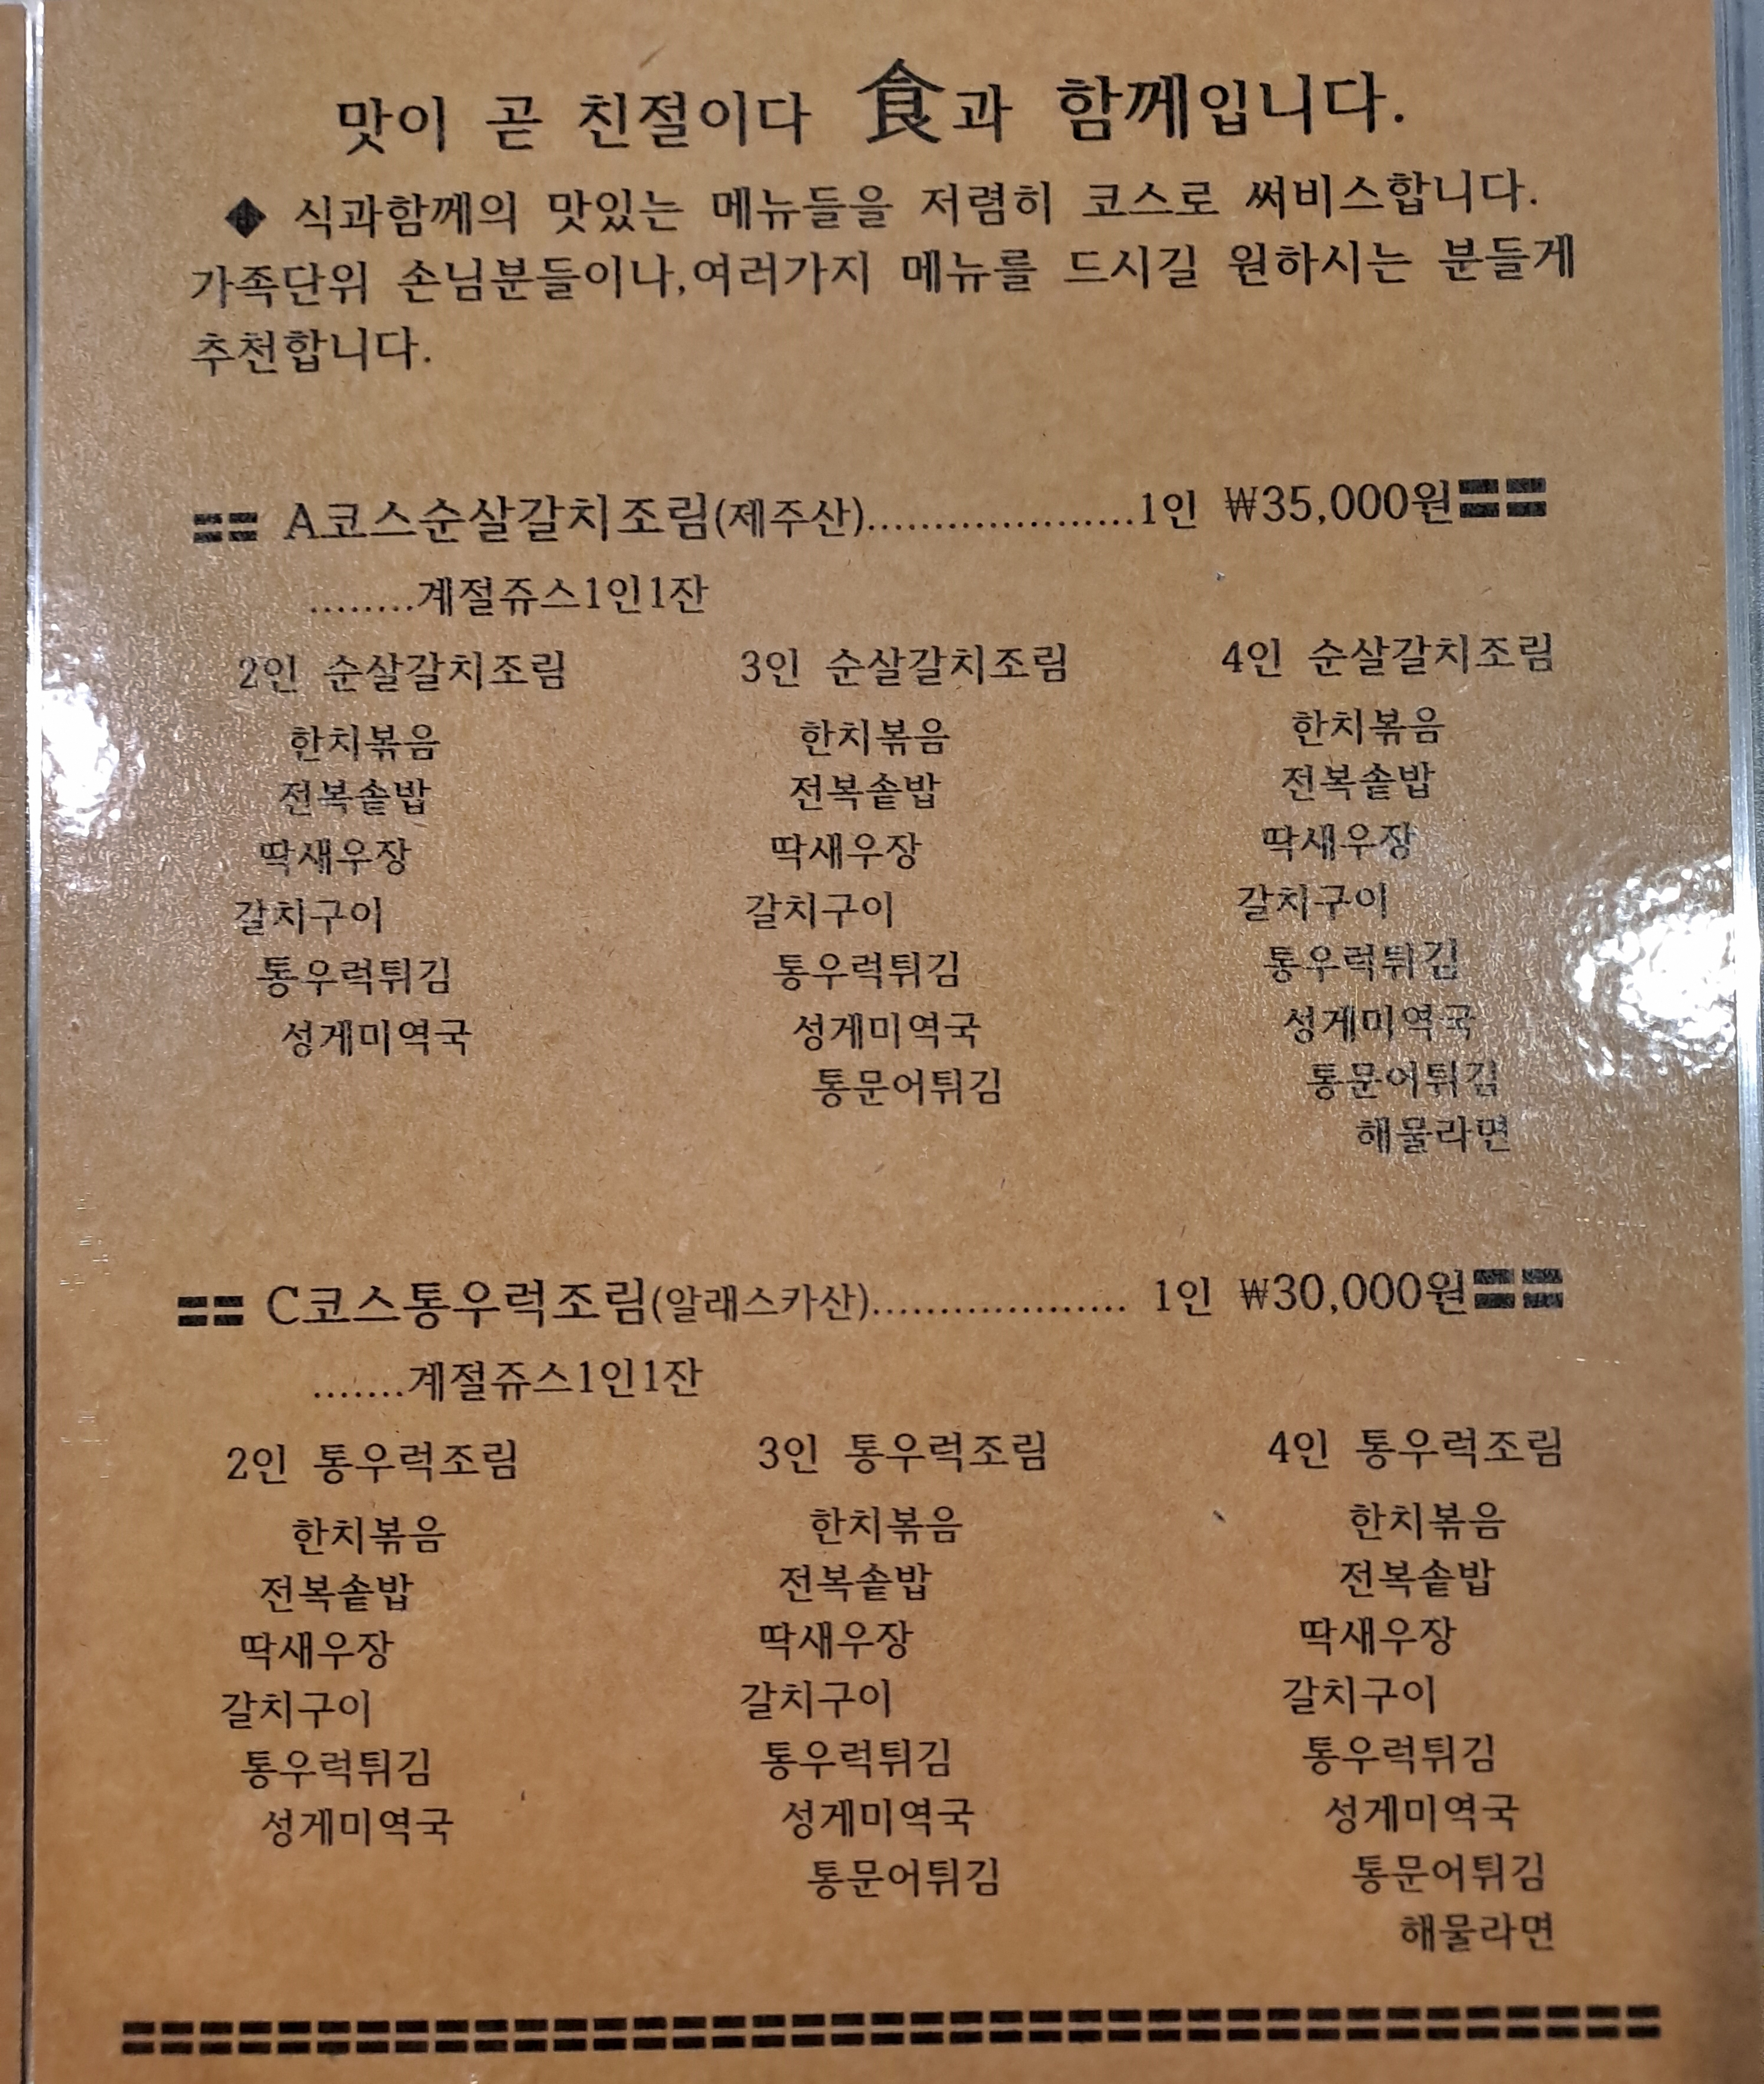 맛이 곧 친절이다 食과 함께입니다.
◆ 식과함께의 맛있는 메뉴들을 저렴히 코스로 써비스합니다.
가족단위 손님분들이나,여러가지 메뉴를 드시길 원하시는 분들게
추천합니다.
== A코스순살갈치조림(제주산)....................1인 ₩35,000원==
........계절쥬스1인1잔
2인 순살갈치조림 3인 순살갈치조림 4인 순살갈치조림
한치볶음 한치볶음 한치볶음
전복솥밥 전복솥밥 전복솥밥
딱새우장 딱새우장 딱새우장
갈치구이 갈치구이 갈치구이
통우럭튀김 통우럭튀김 통우럭튀김
성게미역국 성게미역국 성게미역국
통문어튀김 통문어튀김
해물라면
== C코스통우럭조림(알래스카산)................... 1인 ₩30,000원==
.......계절쥬스1인1잔
2인 통우럭조림 3인 통우럭조림 4인 통우럭조림
한치볶음 한치볶음 한치볶음
전복솥밥 전복솥밥 전복솥밥
딱새우장 딱새우장 딱새우장
갈치구이 갈치구이 갈치구이
통우럭튀김 통우럭튀김 통우럭튀김
성게미역국 성게미역국 성게미역국
통문어튀김 통문어튀김
해물라면